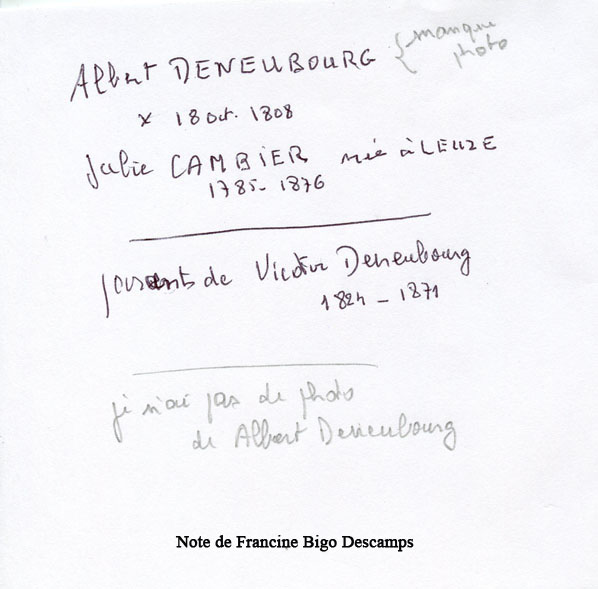 Albert DENEUBOURG { manque
photo
x 18 Oct. 1808
Julie CAMBIER née à LEUZE
1785 - 1876
parents de Victor Deneubourg
1824 - 1871
je n'ai pas de photo
de Albert Deneubourg
Note de Francine Bigo Descamps